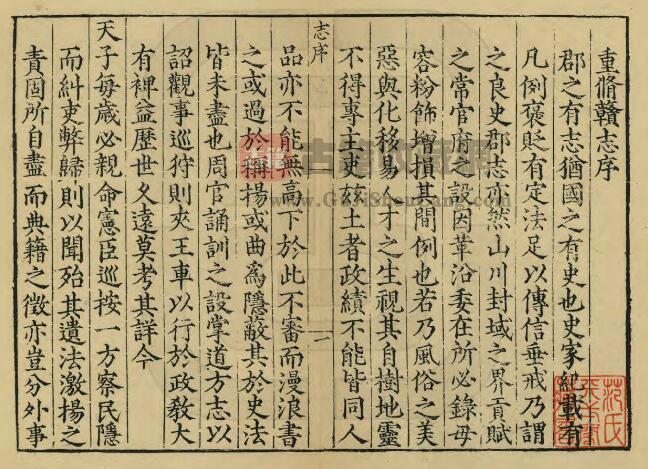 重脩贛志序
郡之有志猶國之有史也史家紀載有
凡例褒貶有定法足以傳信垂戒乃謂
之良史郡志亦然山川封域之界貢賦
之常官府之設因革沿委在所必錄毋
容粉飾增損其間例也若乃風俗之美
惡與化移易人才之生視其自樹地靈
不得專主吏茲土者政績不能皆同人
志序
一
品亦不能無高下於此不審而漫浪書
之或過於稱揚或曲爲隱蔽其於史法
皆未盡也周官誦訓之設掌道方志以
詔觀事巡狩則夾王車以行於政敎大
有裨益歷世久遠莫考其詳今
天子每歲必親命憲臣巡按一方察民隱
而糾吏弊歸則以聞殆其遺法激揚之
責固所自盡而典籍之徵亦豈分外事